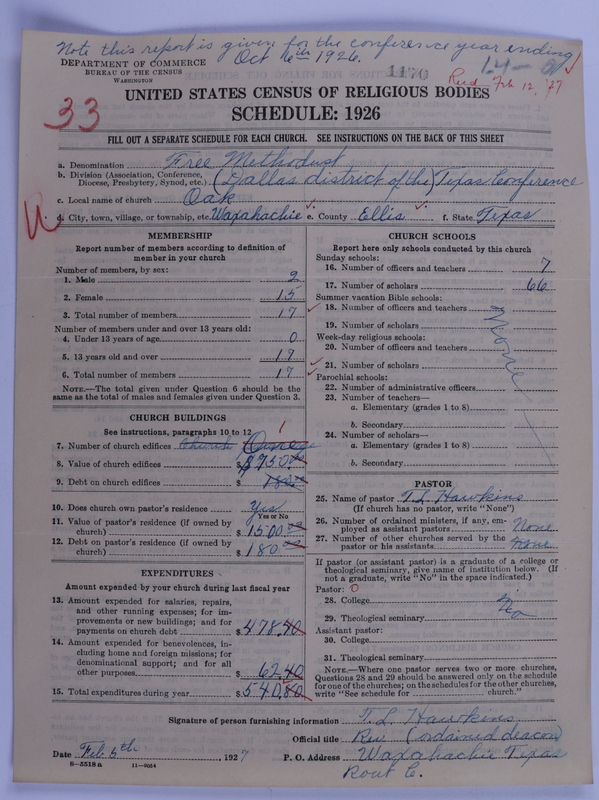 Note this report is given for the conference year ending
Oct 6th 1926.
DEPARTMENT OF COMMERCE
BUREAU OF THE CENSUS
WASHINGTON
1170
Recd Feb 12, '27
33
UNITED STATES CENSUS OF RELIGIOUS BODIES
SCHEDULE: 1926
FILL OUT A SEPARATE SCHEDULE FOR EACH CHURCH. SEE INSTRUCTIONS ON THE BACK OF THIS SHEET
a. Denomination Free Methodist
b. Division (Association, Conference, Diocese, Presbytery, Synod, etc.) (Dallas district of the) Texas Conference
c. Local name of church Oak
d. City, town, village, or township, etc. Waxahachie e. County Ellis f. State Texas
MEMBERSHIP
Report number of members according to definition of
member in your church
Number of members, by sex:
1. Male 2
2. Female 15
3. Total number of members 17
Number of members under and over 13 years old:
4. Under 13 years of age 0
5. 13 years old and over 17
6. Total number of members 17
NOTE.—The total given under Question 6 should be the
same as the total of males and females given under Question 3.
CHURCH BUILDINGS
See instructions, paragraphs 10 to 12
7. Number of church edifices Church 1
8. Value of church edifices $ 950.00
9. Debt on church edifices $ 180.00
10. Does church own pastor's residence Yes
Yes or No
11. Value of pastor's residence (if owned by
church) $ 1500.00
12. Debt on pastor's residence (if owned by
church) $ 180.00
EXPENDITURES
Amount expended by your church during last fiscal year
13. Amount expended for salaries, repairs,
and other running expenses; for im-
provements or new buildings; and for
payments on church debt $ 478.40
14. Amount expended for benevolences, in-
cluding home and foreign missions; for
denominational support; and for all
other purposes $ 62.40
15. Total expenditures during year $ 540.80
CHURCH SCHOOLS
Report here only schools conducted by this church
Sunday schools:
16. Number of officers and teachers 7
17. Number of scholars 66
Summer vacation Bible schools:
18. Number of officers and teachers
19. Number of scholars
Week-day religious schools:
20. Number of officers and teachers
21. Number of scholars
None
Parochial schools:
22. Number of administrative officers
23. Number of teachers—
a. Elementary (grades 1 to 8)
b. Secondary
24. Number of scholars—
a. Elementary (grades 1 to 8)
b. Secondary
PASTOR
25. Name of pastor T. L. Hawkins
(If church has no pastor, write "None")
26. Number of ordained ministers, if any, em-
ployed as assistant pastors None
27. Number of other churches served by the
pastor or his assistants None
If pastor (or assistant pastor) is a graduate of a college or
theological seminary, give name of institution below. (If
not a graduate, write "No" in the space indicated.)
Pastor: 0
28. College No
29. Theological seminary
Assistant pastor:
30. College
31. Theological seminary
NOTE.—Where one pastor serves two or more churches,
Questions 28 and 29 should be answered only on the schedule
for one of the churches; on the schedules for the other churches,
write "See schedule for church."
Signature of person furnishing information T. L. Hawkins
Official title Rev (ordained deacon)
Date Feb. 5th, 1927 P. O. Address Waxahachie Texas
Rout 6.
8-5518a 11-9054